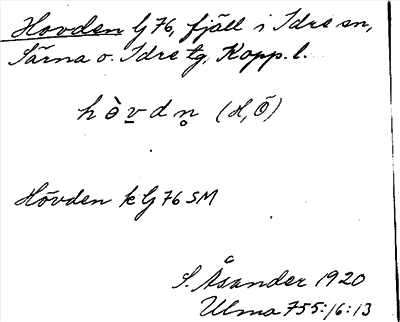 Hovden G 76, fjäll i Idre sn,
Särna o. Idre tg, Kopp. l.
h ò̱ v d n̥ (H, Ö)
Hövden k G 76 SM
S. Åsander 1920
Ulma 755:16:13